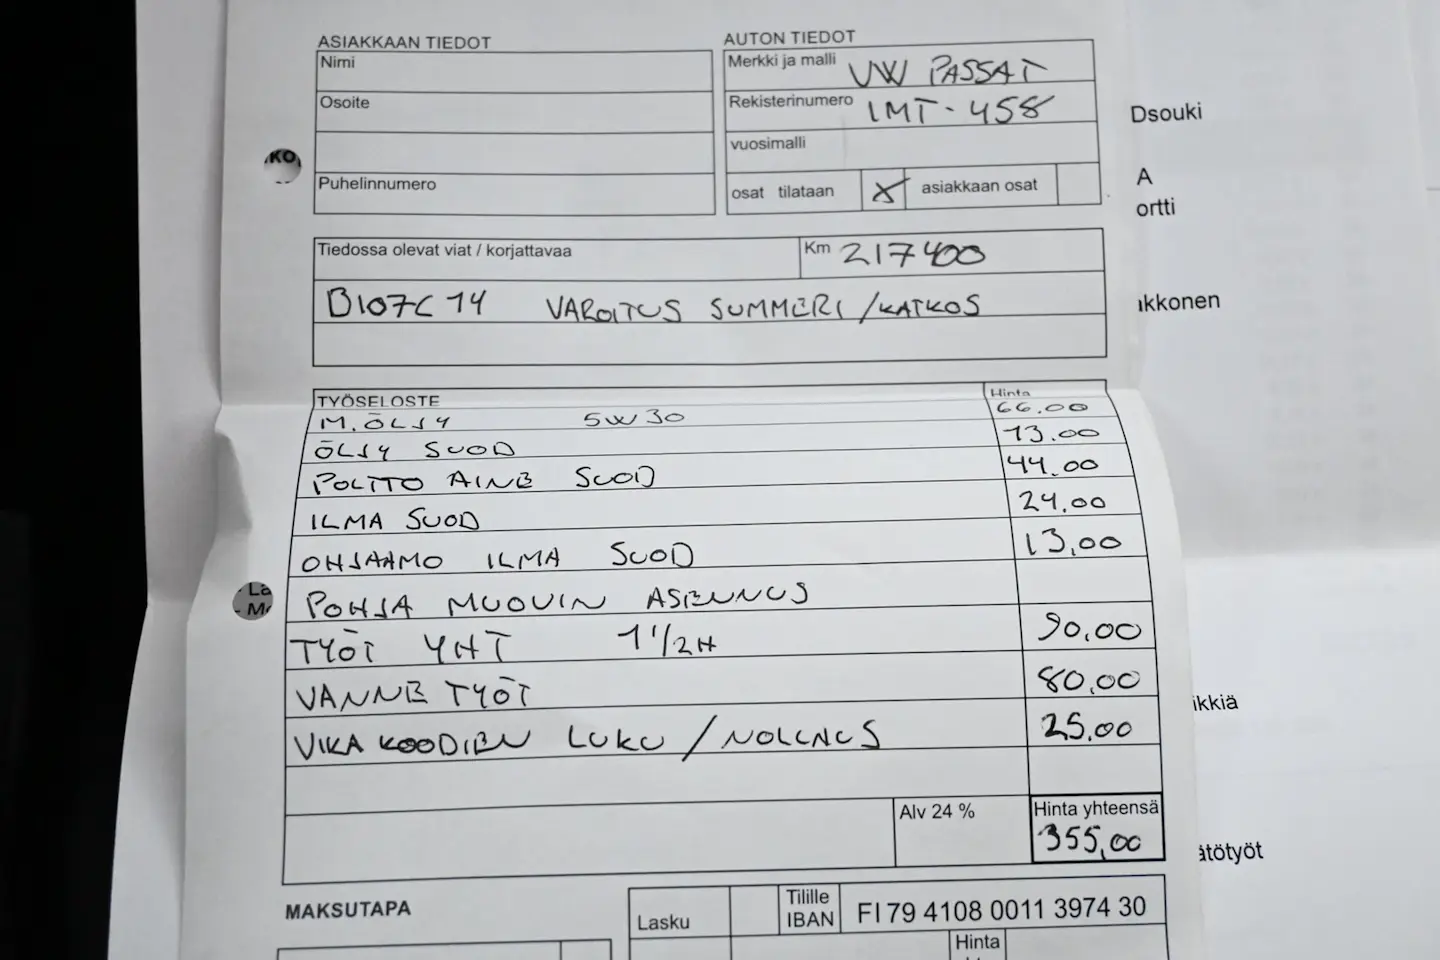 ASIAKKAAN TIEDOT
Nimi
Osoite
Puhelinnumero
AUTON TIEDOT
Merkki ja malli VW PASSAT
Rekisterinumero IMT-458
vuosimalli
osat tilataan X asiakkaan osat
KO
Dsouki
A
ortti
Tiedossa olevat viat / korjattavaa Km 217400
B107C14 VAROITUS SUMMERI/KATKOS
kkonen
TYÖSELOSTE Hinta
M.ÖLJY 5W30 66.00
ÖLJY SUOD 13.00
POLTTO AINE SUOD 44.00
ILMA SUOD 24.00
OHJAAMO ILMA SUOD 13,00
POHJA MUOVIN ASENNUS
TYÖT YHT 1 1/2H 90,00
VANNE TYÖT 80,00
VIKA KOODIEN LUKU / NOLLAUS 25,00
ikkiä
Alv 24 % Hinta yhteensä
355,00
ätötyöt
MAKSUTAPA
Lasku
Tilille
IBAN FI79 4108 0011 3974 30
Hinta